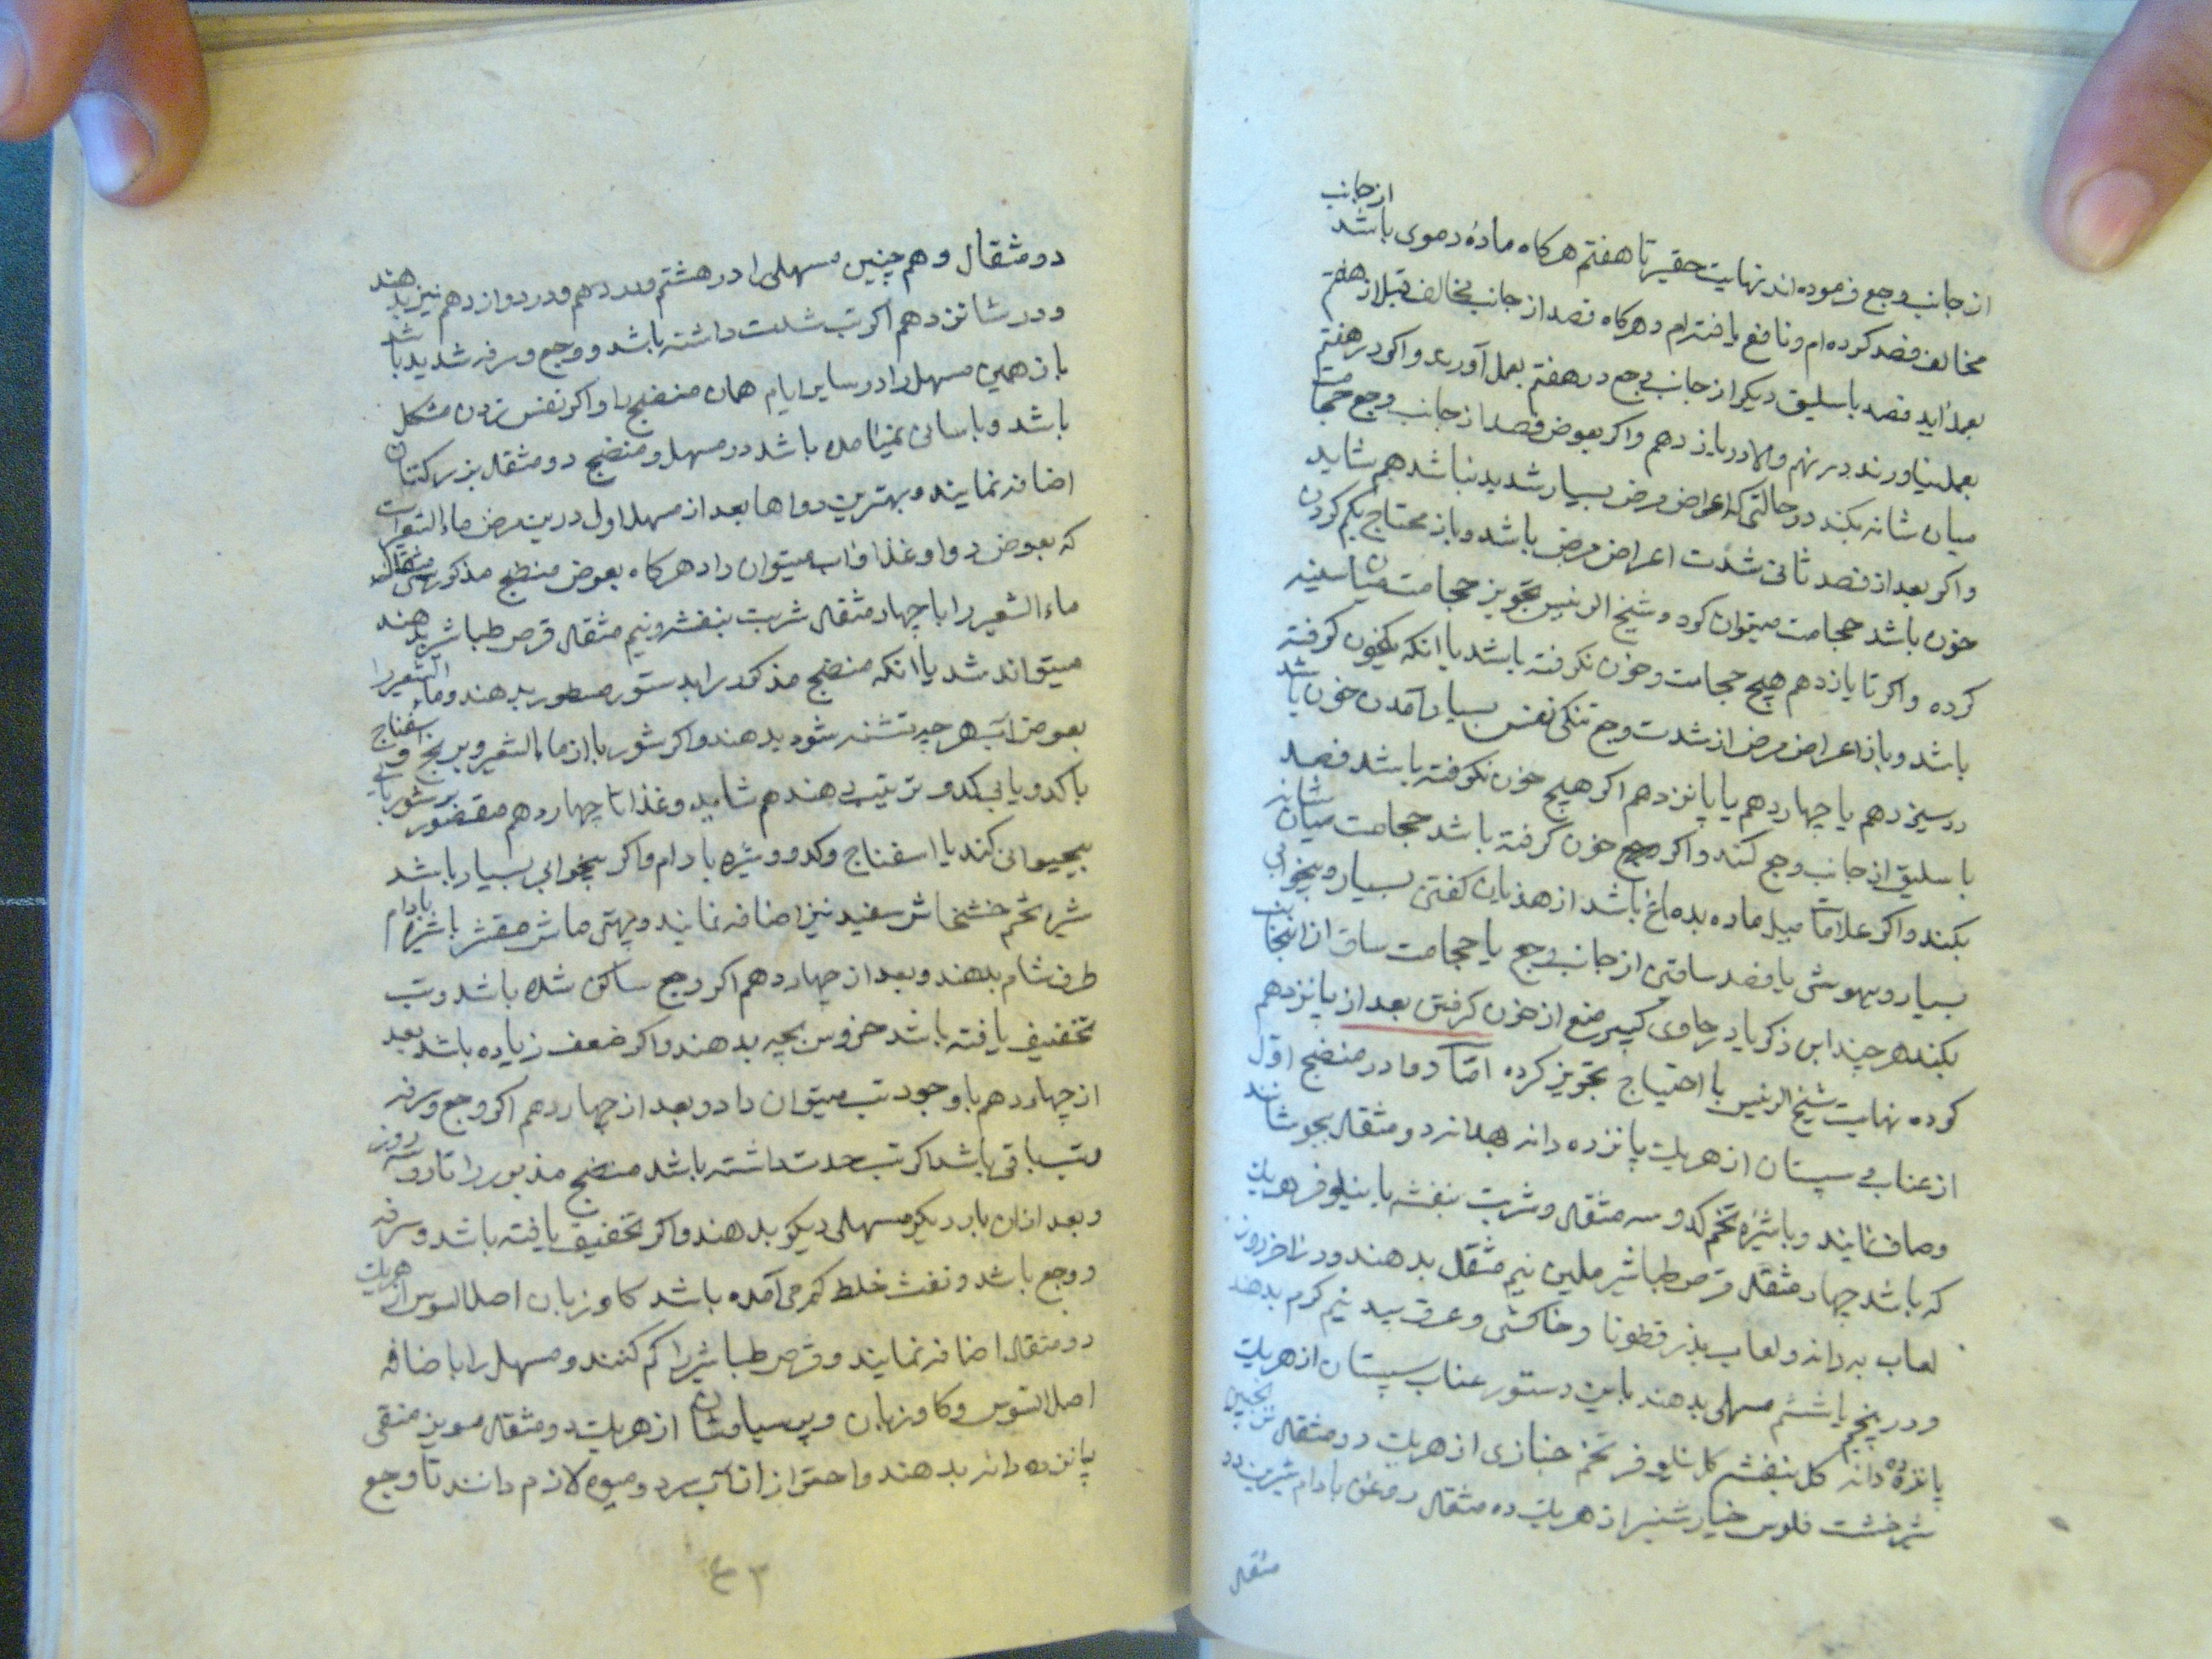 از جانب وجع فرموده اند نهایت حقیر تا هفتم هرکاه مادۀ دموی باشد از جانب
مخالف فصد کرده ام و نافع یافته ام و هرکاه فصد از جانب مخالف قبل از هفتم
بعمل آید فصد باسلیق دیکر از جانب وجع در هفتم بعمل آورند و اکر در هفتم
بعمل نیاورند در نهم والا در یازدهم و اکر بعوض فصد از جانب وجع حجامت
میان شانه بکند در حالتی که اعراض مرض بسیار شدید نباشد هم شاید
و اکر بعد از فصد ثانی شدت اعراض مرض باشد و باز محتاج بکم کردن
خون باشد حجامت میتوان کرد و شیخ الرئیس تجویز حجامت میان سینه
کرده و اکر تا یازدهم هیچ حجامت و خون نکرفته باشد یا انکه خون کرفته
باشد و باز اعراض مرض از شدت وجع تنکی نفس بسیار آمدن خون باشد
در سیزدهم یا چهاردهم یا پانزدهم اکر هیچ خون نکرفته باشد فصد
باسلیق از جانب وجع کند و اکر خون کرفته باشد حجامت میان شانه
بکند و اکر علامات میل ماده بدماغ باشد از هذیان کفتن بسیار و بیخوابی
بسیار و بیهوشی یا فصد سافن از جانب وجع یا حجامت ساق از انجانب
بکند هرچند ابن ذکریا در حاوی کبیر منع از خون کرفتن بعد از پانزدهم
کرده نهایت شیخ الرئیس با احتیاج تجویز کرده امّا دوا در منضج اوّل
از عناب سپستان از هریک پانزده دانه بهدانه دو مثقال بجوشانند
و صاف نمایند و با شیرۀ تخم کدو سه مثقال و شربت بنفشه یا نیلوفر هریک
که باشد چهار مثقال قرص طباشیر ملین نیم مثقال بدهند و در اخر روز
لعاب به دانه و لعاب بذر قطونا و خاکشی و عرق بید نیم کرم بدهند
و در پنجم یا ششم مسهلی بدهند باین دستور عناب سپستان از هریک
پانزده دانه کل بنفشه کل نیلوفر تخم خبازی از هریک دو مثقال ترنجبین
شیرخشت فلوس خیار شنبر از هریک ده مثقال روغن بادام شیرین دو
مثقال
دو مثقال و هم چنین مسهلی را در هشتم و در دهم و در دوازدهم نیز بدهند
و در شانزدهم اکر تب شدت داشته باشد و وجع و سرفه شدید باشد
باز همین مسهل را در سایر ایام همان منضج را و اکر نفس زدن مشکل
باشد و باسانی نمیامده باشد در مسهل و منضج دو مثقال بزر کتان
اضافه نمایند و بهترین دواها بعد از مسهل اول درین مرض ماء الشعیر است
که بعوض دوا و غذا و اب میتوان داد هرکاه بعوض منضج مذکور سی مثقال
ماء الشعیر را با چهار مثقال شربت بنفشه و نیم مثقال قرص طباشیر بدهند
میتواند شد یا انکه منضج مذکور را بدستور مسطور بدهند و ماء الشعیر را
بعوض آب هرچه تشنه شود بدهند و اکر شوربا از ماء الشعیر و برنج و اسفناج
با کدو یا بی کدو ترتیب دهند هم شاید و غذا تا چهاردهم مقصور بر شوربای
بیحیوانی کند یا اسفناج و کدو و شیره بادام و اکر بیخوابی بسیار باشد
شیره تخم خشخاش سفید نیز اضافه نمایند و پهتی ماش مقشر با شیره بادام
طرف شام بدهند و بعد از چهاردهم اکر وجع ساکن شده باشد و تب
تخفیف یافته باشد خروس بچه بدهند و اکر ضعف زیاده باشد بعد
از چهاردهم با وجود تب میتوان داد و بعد از چهاردهم اکر وجع و سرفه
و تب باقی باشد اکر تب حدت داشته باشد منضج مذبور را تا دو سه روز
و بعد ازان بار دیکر مسهلی دیکر بدهند و اکر تخفیف یافته باشد و سرفه
و وجع باشد و نفث خلط کم می آمده باشد کاو زبان اصل السوس از هریک
دو مثقال اضافه نمایند و قرص طباشیر را کم کنند و مسهل را با اضافه
اصل السوس و کاو زبان و پرسیاوشان از هریک دو مثقال مویز منقی
پانزده دانه بدهند و احتراز از آب سرد و میوه لازم دانند تا وجع
۴۳